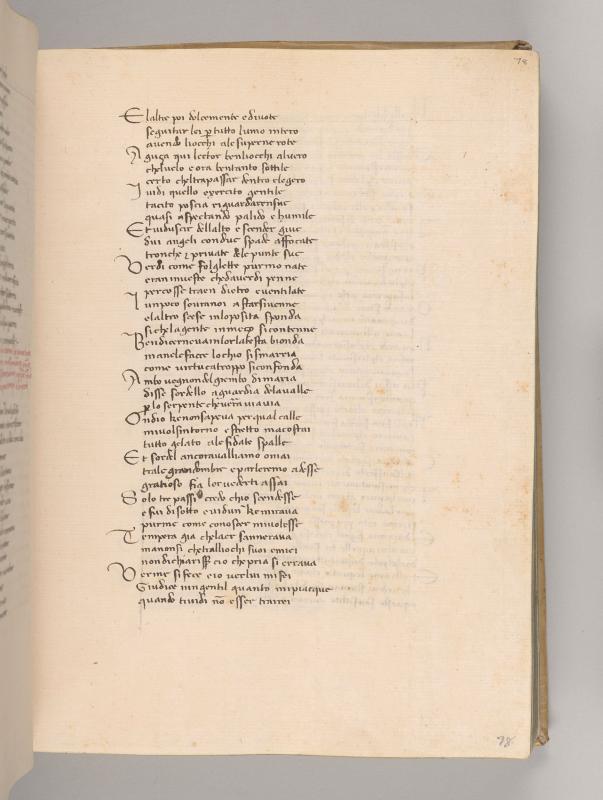 78
Elaltre poi dolcemente edivote
seguitar lei p tutto lumo intero
avendo liocchi ale superne rote
Aguça qui lector benliocchi alvero
chelvelo e ora bentanto sottile
certo cheltrapassar dentro elegero
I vidi quello exercito gentile
tacito poscia riguardarensue
quasi aspectando palido e humile
Et viduscir dellalto e scender giue
dui angeli conduc spade affocate
tronche & private dele punte sue
Verdi come folglette pur mo nate
eran investe chedaverdi penne
percosse traen dietro e ventilate
Lun poco sovra noi a starsi venne
elaltro scese inloposita sponda
si chelagente inmeço si contenne
Ben dicernea inlor la testa bionda
ma nele facce lochio si smarria
come virtu catroppo si confonda
Ambo vegnon del grembo di maria
disse sordello aguardia dela valle
p lo serpente che verra via via
Ondio ke non sapeva per qual calle
mi volsintorno estretto macostai
tutto gelato ale fidate spalle
Et sordel ancoravalliamo omai
trale grandombre e parleremo adesse
gratioso fia lor vedervi assai
Solo tre passi credo chio scendesse
e fui disotto e vidun ke mirava
pur me come conoscer mi volesse
Tempera gia chelaer sannerava
ma non si che tralliochi suoi emiei
non dichiariss cio che pria si errava
Ver me si fece e io ver lui mi fei
Giudice nin gentil quanto mi piacque
quando tividi no esser tra i rei
78